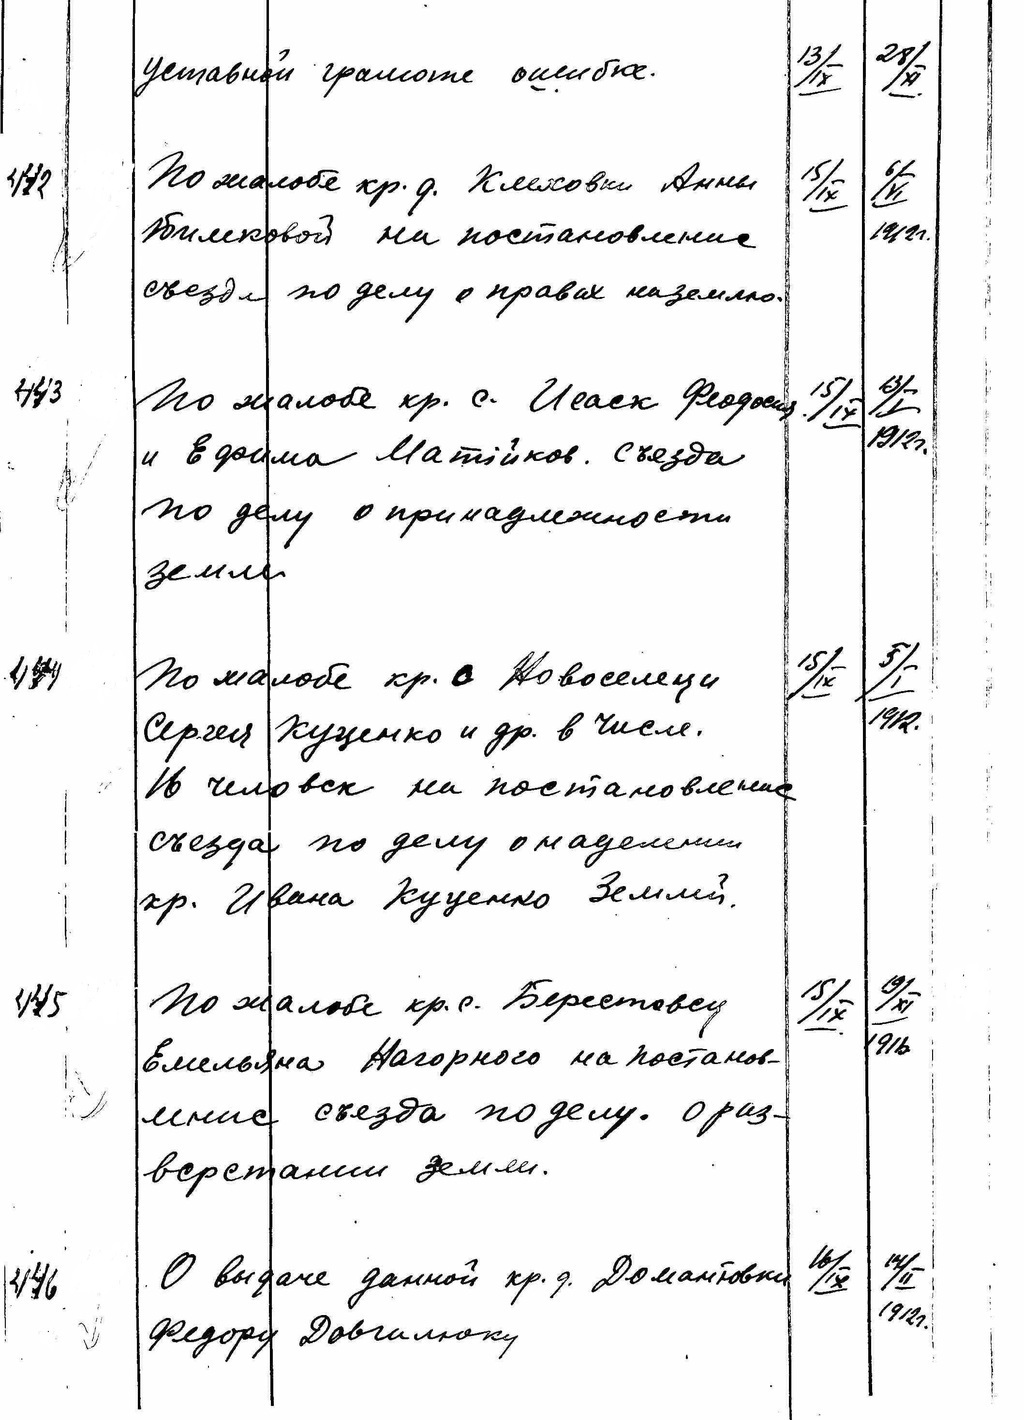 уставной грамоте ошибке. 13/IX 28/XI.
442 По жалобе кр. д. Клеховки Анны 15/IX 6/VI
Билековой на постановление 1912г.
съезда по делу о правах на землю.
443 По жалобе кр. с. Исаек Феодосия 15/IX 13/I
и Ефима Матійков. съезда 1912г.
по делу о принадлежности
земли
444 По жалобе кр. с Новоселецы 15/IX 5/I
Сергея Куценко и др. в числе. 1912.
16 человек на постановление
съезда по делу о наделении
кр. Ивана Куценко Землей.
445 По жалобе кр. с. Берестовец 15/IX 19/XI
Емельяна Нагорного на постанов- 1916
ление съезда по делу. о раз-
верстании земли.
446 О выдаче данной кр. д. Домантовки 16/IX 14/II
Федору Довгилюку 1912г.